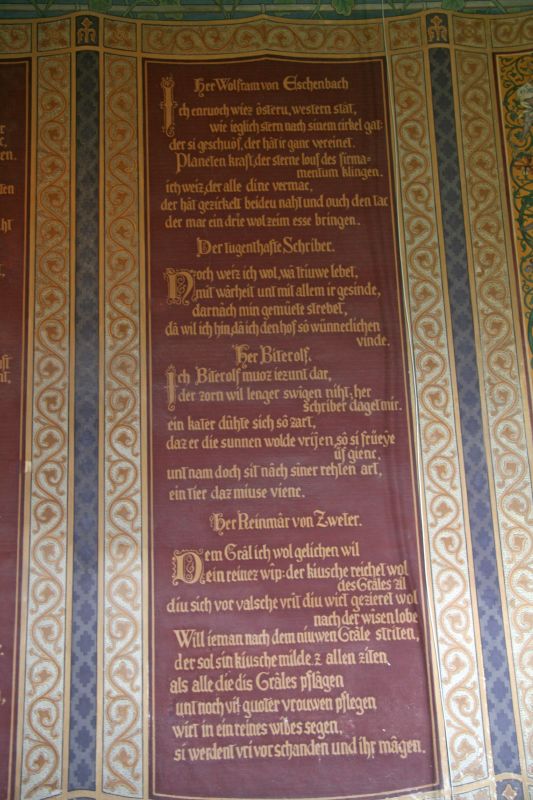 Her Wolfram von Eschenbach
Ich enruoch wiez ôstern, western stât,
wie ieglich stern nach sinem cirkel gat:
der si geschuof, der hât ir ganc vereinet.
Planeten kraft, der sterne louf des firma-
mentum klingen.
ich weiz, der alle dine vermac,
der hât gezirkelt beideu naht und ouch den tac
der mar ein drie wol zeim esse bringen.
Der tugenthafte Schriber.
Noch weiz ich wol, wâ triuwe lebet,
mit wârheit unt mit allem ir gesinde,
darnâch min gemüete strebet,
dâ wil ich hin, dâ ich den hof sô wünneclichen
vinde.
Her Biterolf.
Ich Biterolf muoz iezunt dar,
der zorn wil lenger swîgen niht, her
schriber daget mir.
ein kater dûhte sich sô zart,
daz er die sunnen wolde vrîjen, sô si früeje
ûf gienc,
unt nam doch sît nâch sîner rehten art,
ein tier daz miuse vienc.
Her Reinmâr von Zweter.
Dem Grâl ich wol gelichen wil
ein reinez wîp: der kiusche reichet wol
des Grâles zil
diu sich vor valsche vrit diu wirt gezieret wol
nach der wisen lobe
Will ieman nach dem niuwen Grâle striten,
der sol sin kiusche milde z allen ziten,
als alle die dis Grâles pflâgen
unt noch vil guoter vrouwen pflegen
wirt in ein reines wibes segen,
si werdent vri vor schanden und ihr mâgen.